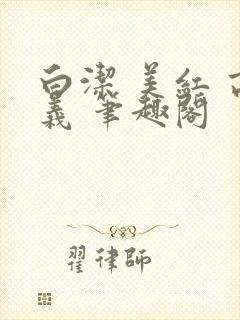 白潔 美紅 
義 筆趣閣
翟律師